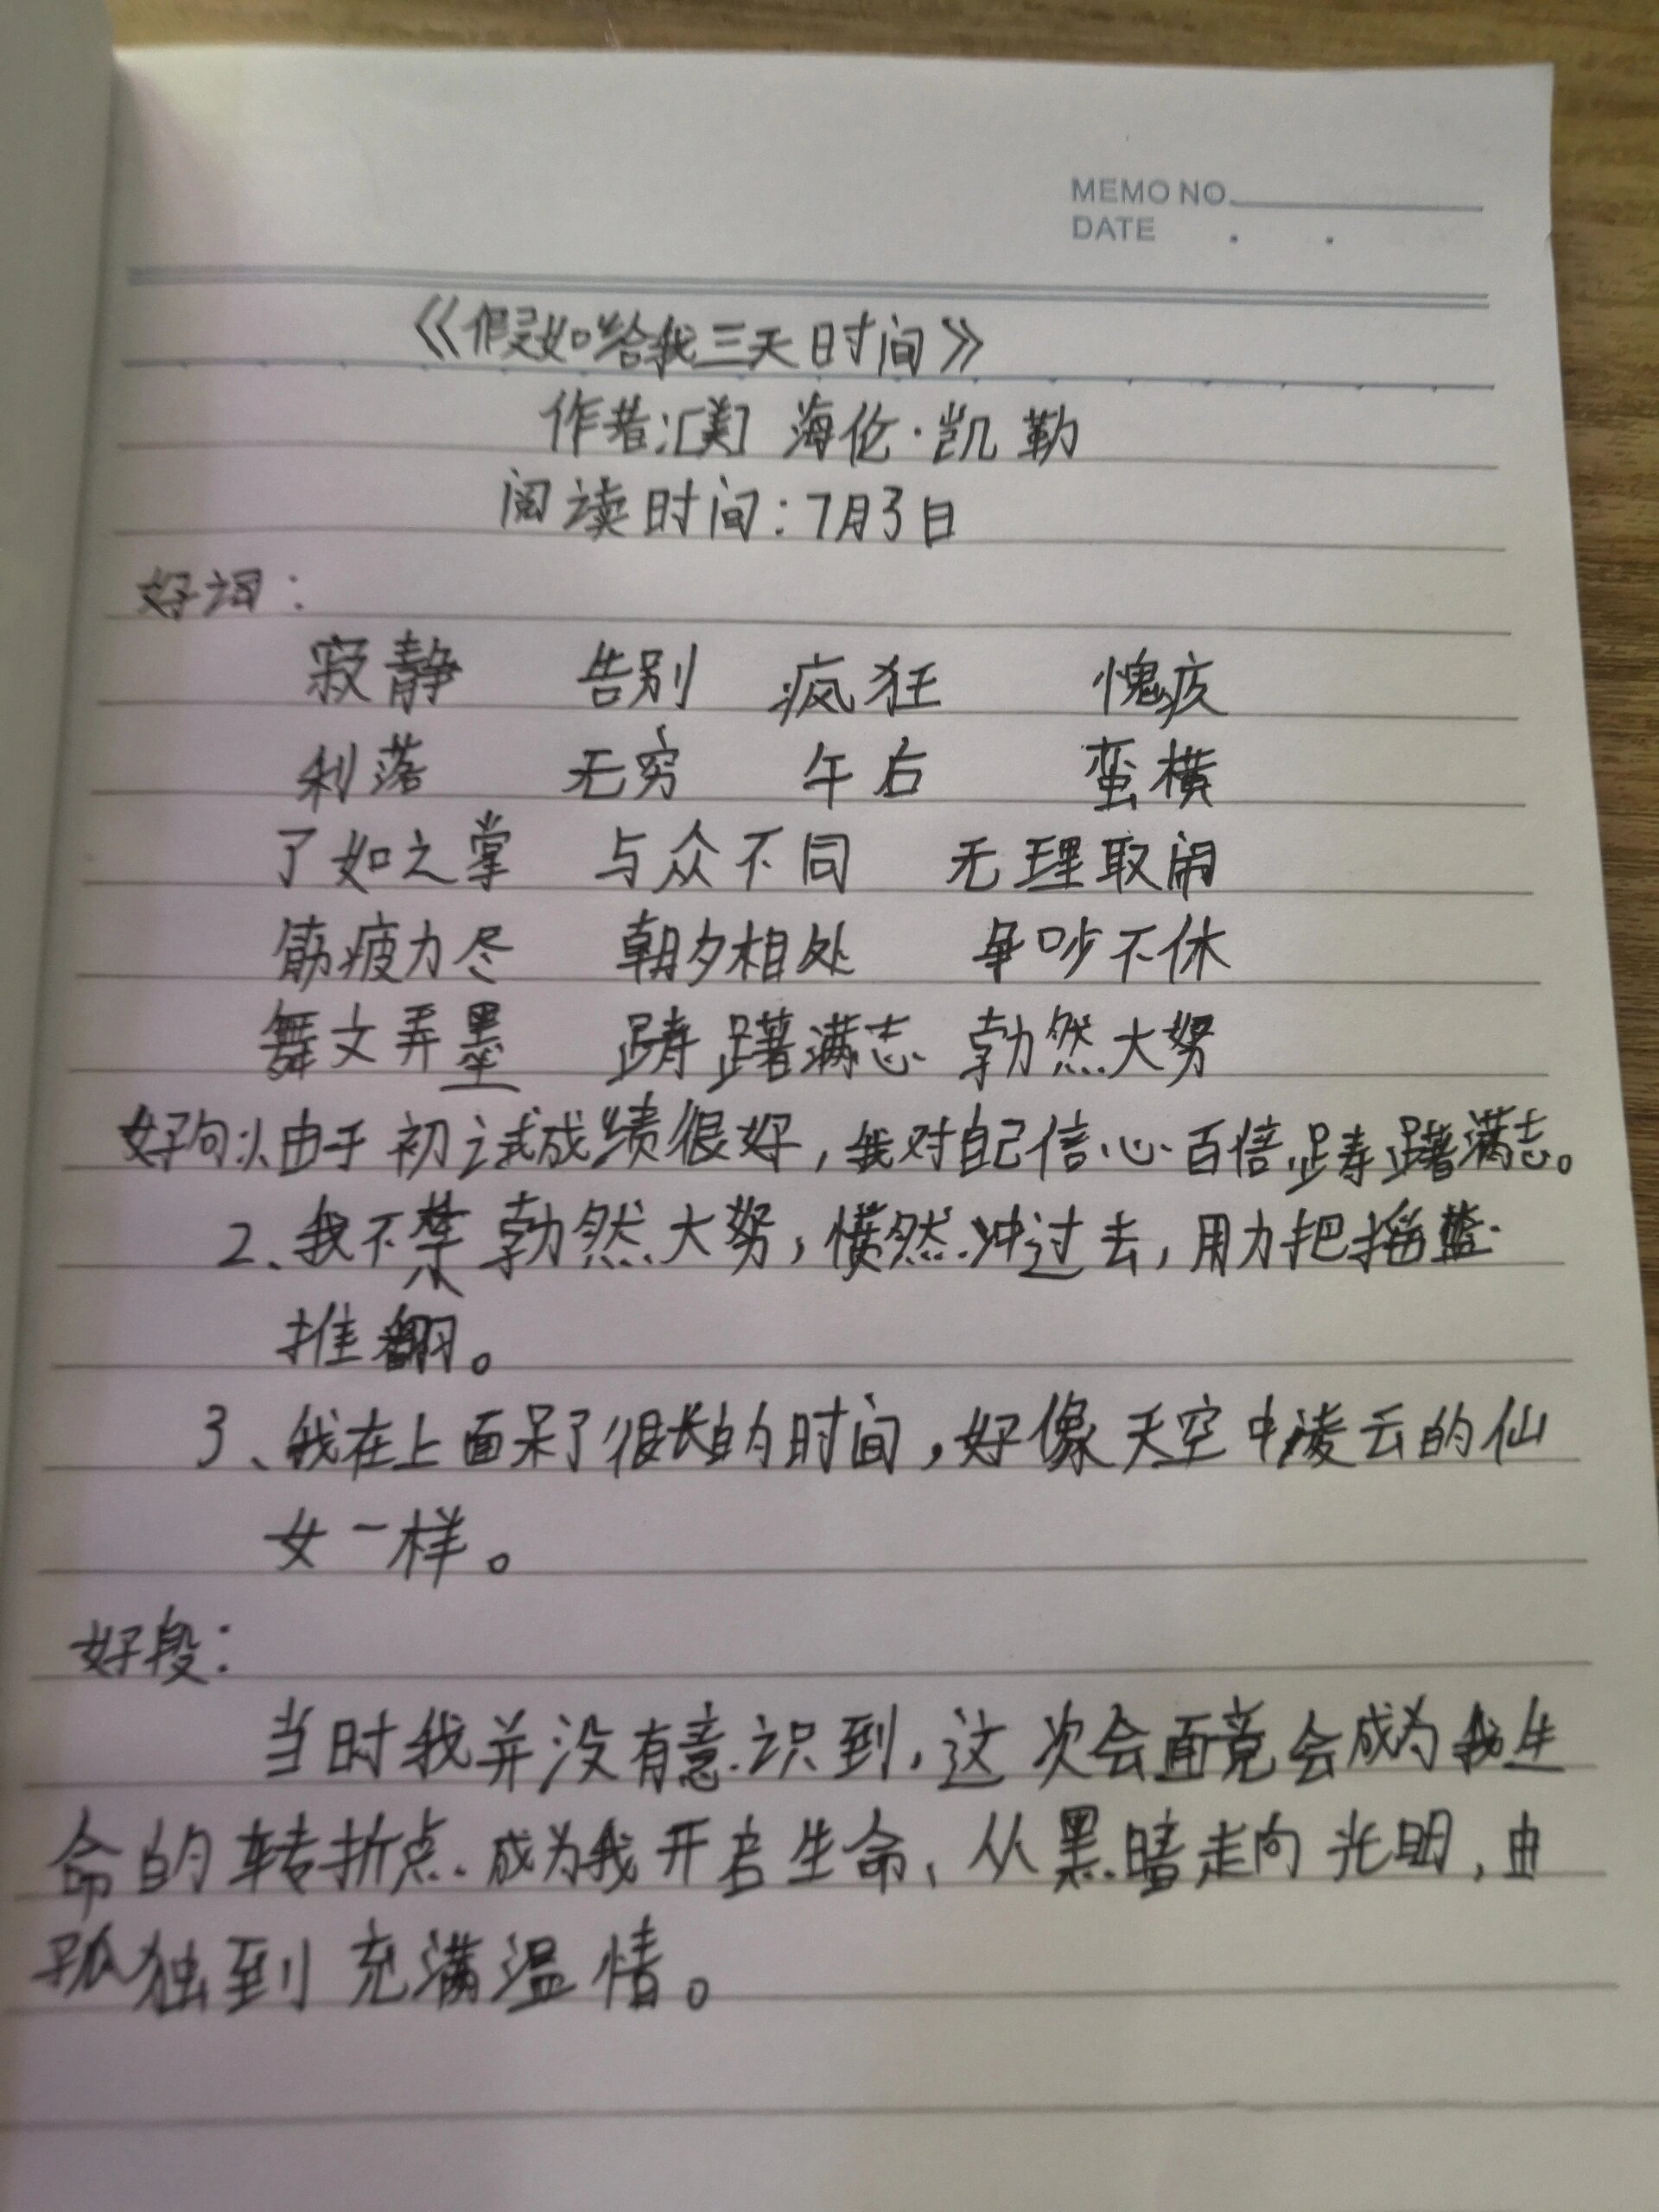 MEMO NO.
DATE . .
《假如给我三天时间》
作者:[美] 海伦·凯勒
阅读时间:7月3日
好词:
寂静 告别 疯狂 愧疚
利落 无穷 午后 蛮横
了如之掌 与众不同 无理取闹
筋疲力尽 朝夕相处 争吵不休
舞文弄墨 踌躇满志 勃然大努
好句:1.由于初试成绩很好,我对自己信心百倍,踌躇满志。
2、我不禁勃然大努,愤然冲过去,用力把摇篮
推翻。
3、我在上面呆了很长的时间,好像天空中凌云的仙
女一样。
好段:
当时我并没有意识到,这次会面竟会成为我生
命的转折点.成为我开启生命、从黑暗走向光明,由
孤独到充满温情。